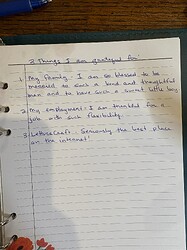 3 Things I am grateful for
1. My Family: I am so blessed to be
married to such a kind and thoughtful
man and to have such a sweet little boy
2. My employment: I am thankful for a
job with such flexibility.
3. Lettercraft. Seriously the best place
on the internet!